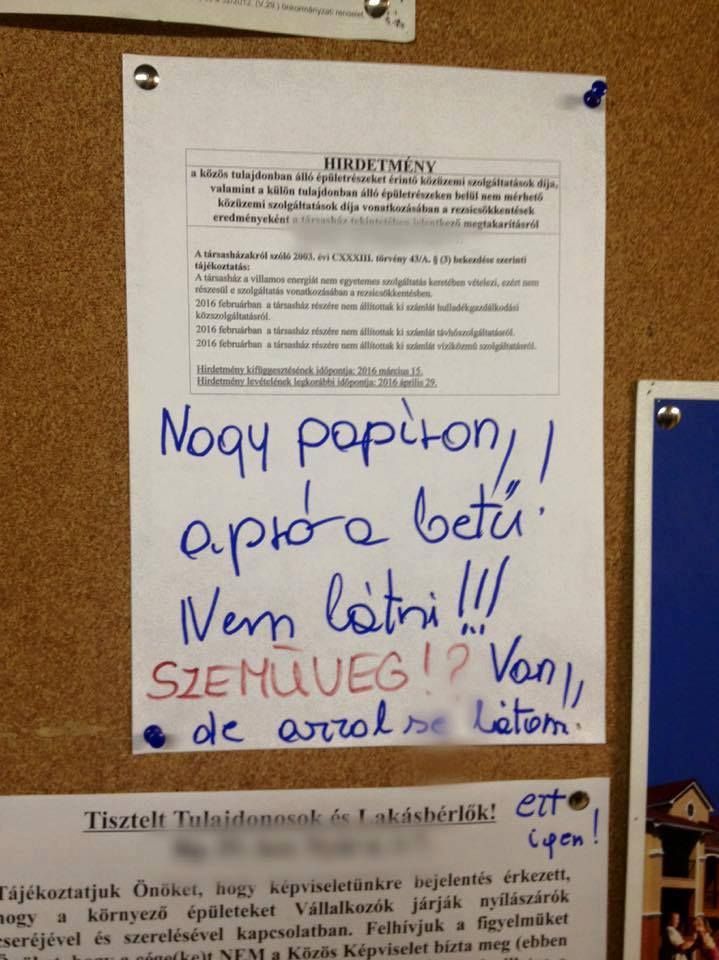 (V.29.) önkormányzati rendelet
HIRDETMÉNY
a közös tulajdonban álló épületrészeket érintő közüzemi szolgáltatások díja,
valamint a külön tulajdonban álló épületrészeken belül nem mérhető
közüzemi szolgáltatások díja vonatkozásában a rezsicsökkentések
eredményeként a társasház tekintetében jelentkező megtakarításról
A társasházakról szóló 2003. évi CXXXIII. törvény 43/A. § (3) bekezdése szerinti
tájékoztatás:
A társasház a villamos energiát nem egyetemes szolgáltatás keretében vételezi, ezért nem
részesül e szolgáltatás vonatkozásában a rezsicsökkentésben.
2016 februárban a társasház részére nem állítottak ki számlát hulladékgazdálkodási
közszolgáltatásról.
2016 februárban a társasház részére nem állítottak ki számlát távhőszolgáltatásról.
2016 februárban a társasház részére nem állítottak ki számlát víziközmű szolgáltatásról.
Hirdetmény kifüggesztésének időpontja: 2016 március 15.
Hirdetmény levételének legkorábbi időpontja: 2016 április 29.
Nagy papíron,
apró a betű!
Nem látni!!!
SZEMÜVEG!? Van,
de arral se látom.
Tisztelt Tulajdonosok és Lakásbérlők! ezt
igen!
Tájékoztatjuk Önöket, hogy képviseletünkre bejelentés érkezett,
hogy a környező épületeket Vállalkozók járják nyílászárók
cseréjével és szerelésével kapcsolatban. Felhívjuk a figyelmüket
NEM a Közös Képviselet bízta meg (ebben